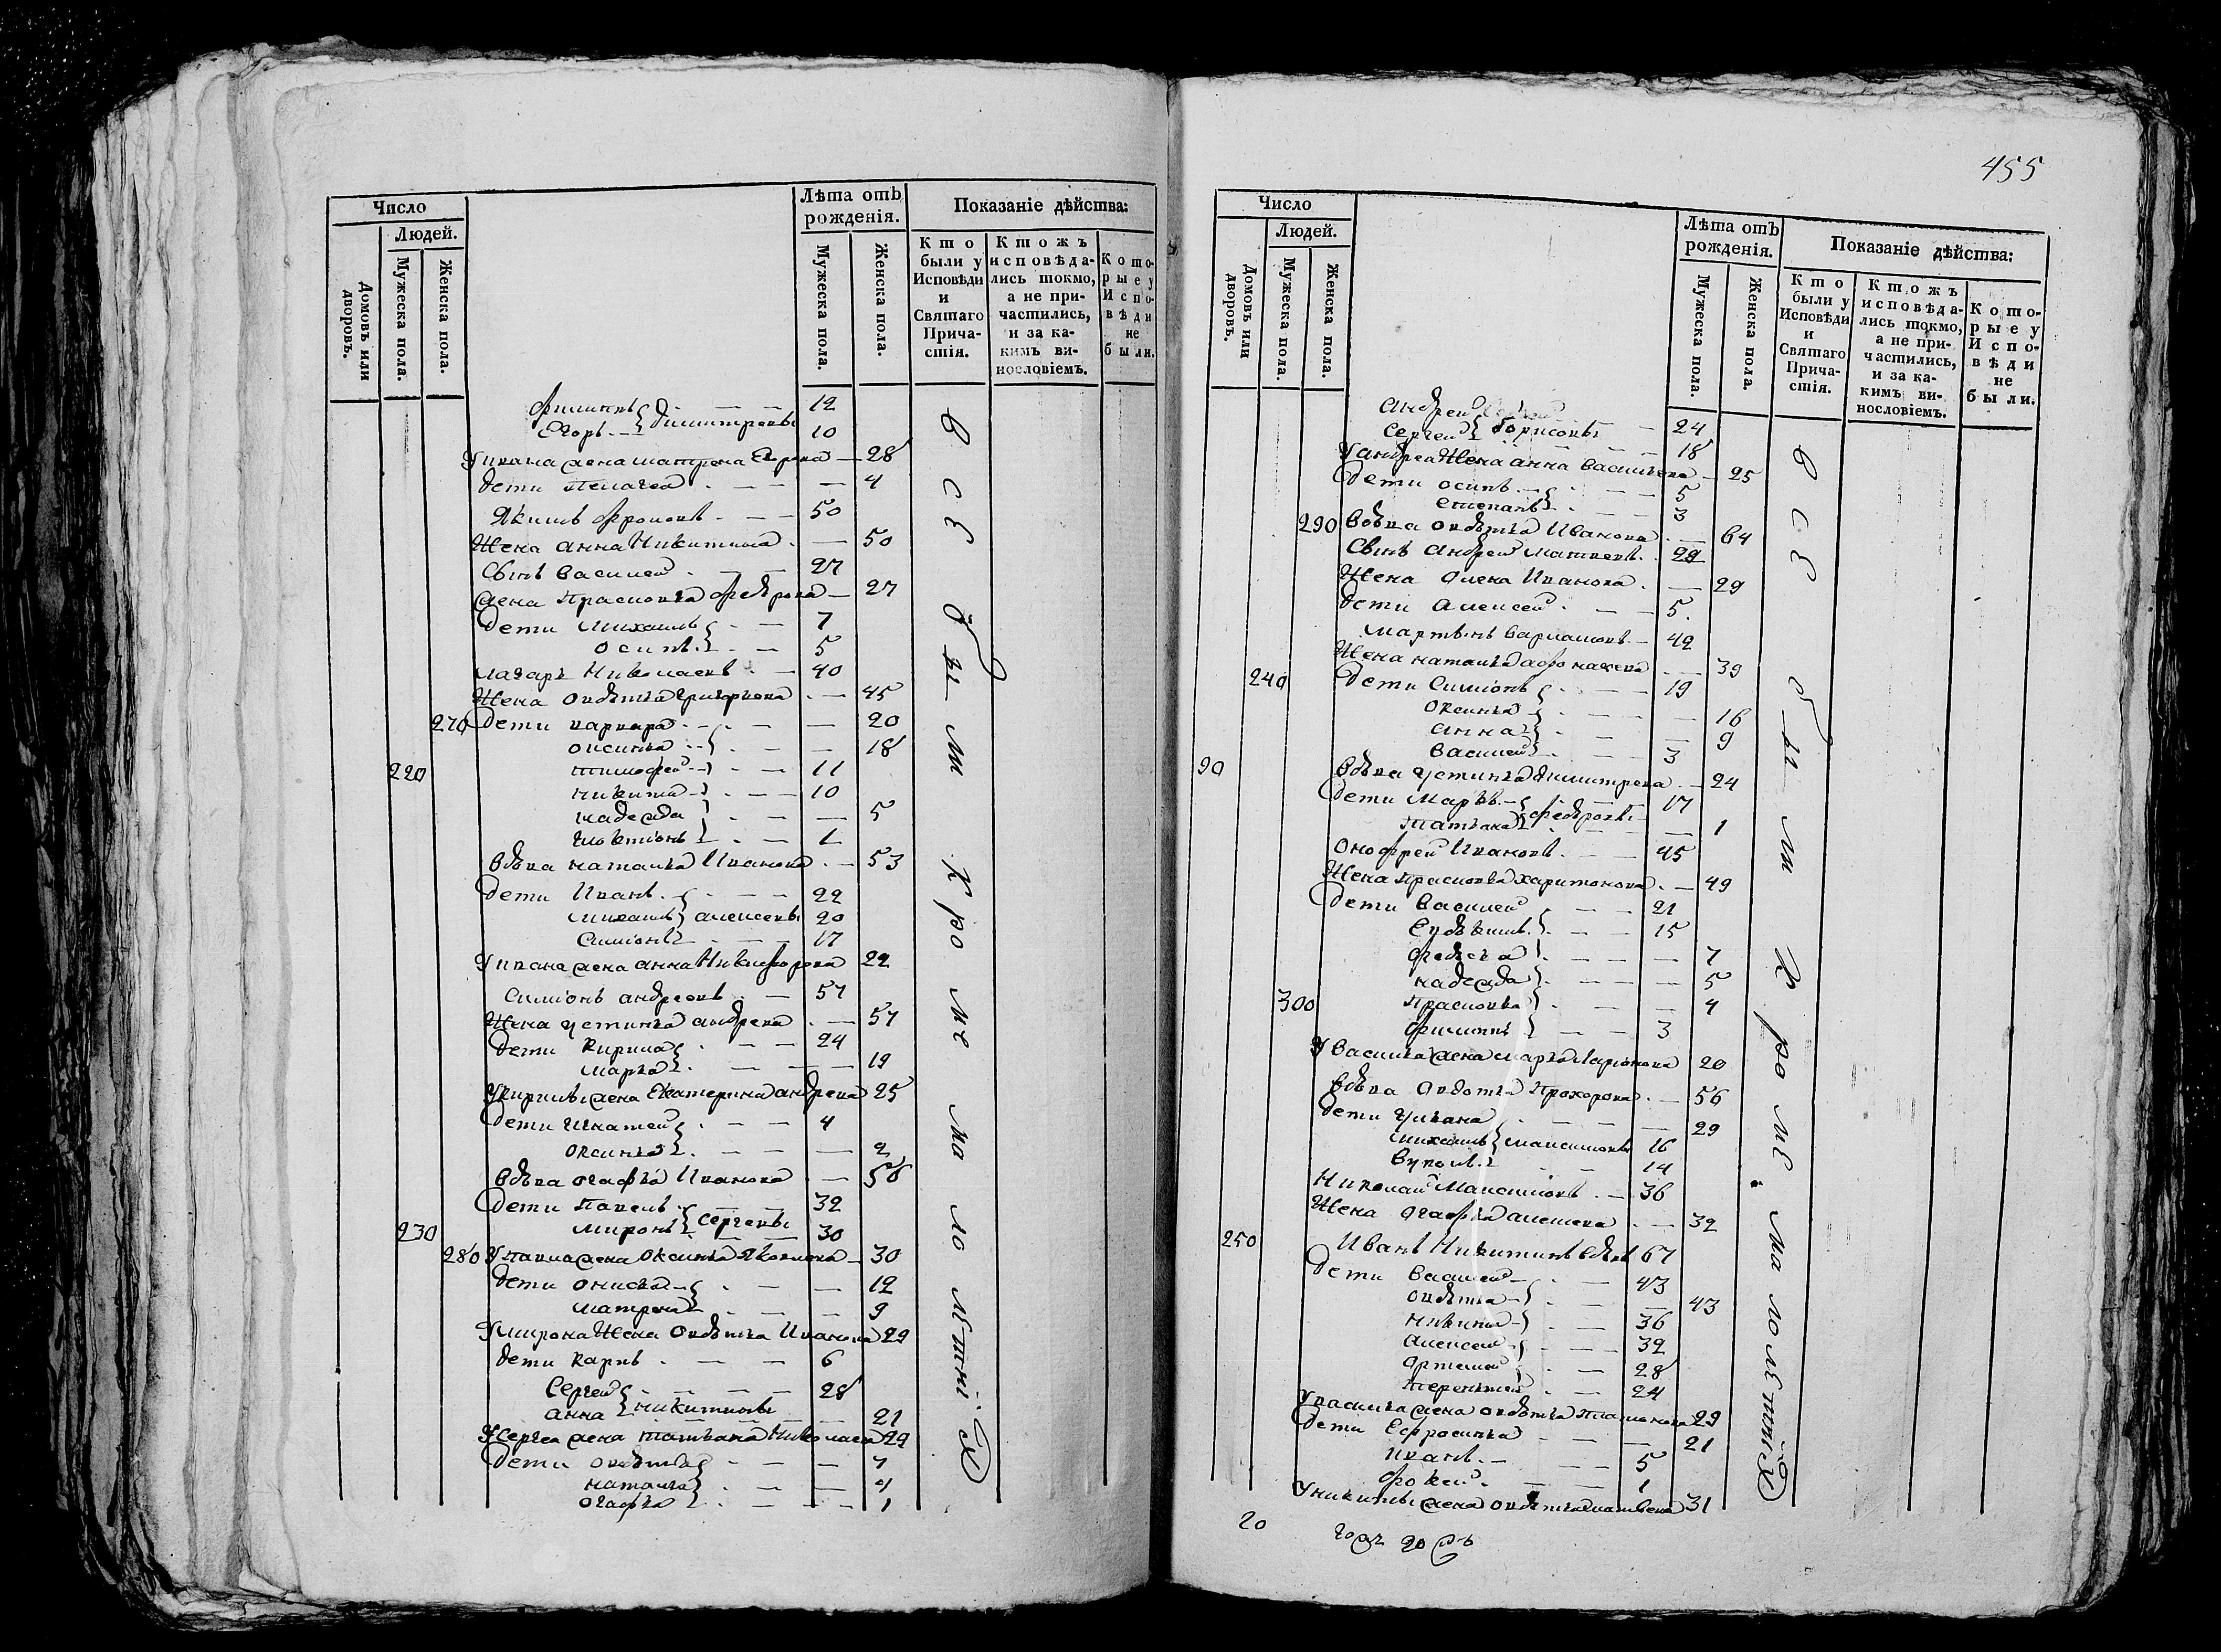 Число
Людей.
Домовъ или дворовъ.
Мужеска пола.
Женска пола.
Лѣта отъ рожденія.
Мужеска пола.
Женска пола.
Показаніе дѣйства:
Кто были у Исповѣди и Святаго Причастія.
Ктожъ исповѣдались токмо, а не причастились, и за какимъ винословіемъ.
Которые у Исповѣди не были.
Филипъ 12
Егоръ Димитревы 10
У ивана жена матрона 28
дети Пелагея 4
Якимъ Фроловъ 50
Жена анна Никитина 50
Сынъ василей 27
жена Прасковья федорова 27
дети михаилъ 7
осипъ 5
лазарь Николаевъ 40
Жена овдотья григорьева 45
270 дети варвара 20
оксинья 18
220 тимофей 11
никита 10
надежда 5
1
вдова наталья Иванова 53
дети Иванъ 22
михаилъ алексеевы 20
симіонъ 17
У ивана жена анна Никифорова 22
симіонъ андреевъ 57
Жена устинья андрева 57
дети кирила 24
марья 19
У кирилы жена Екатерина андрева 25
дети игнатей 4
оксинья 2
вдова огафья Иванова 56
дети Павелъ 32
230 миронъ сергеевы 30
280 У павла жена оксинья Яковлева 30
дети онисья 12
матрена 9
У мирона Жена овдотья Иванова 29
дети карпъ 6
Сергей 28
анна никитины 21
У Сергея жена татьяна Николаева 29
дети овдотья 7
наталья 4
огафья 1
всѣ были кроме малолѣтнихъ
455
Число
Людей.
Домовъ или дворовъ.
Мужеска пола.
Женска пола.
Лѣта отъ рожденія.
Мужеска пола.
Женска пола.
Показаніе дѣйства:
Кто были у Исповѣди и Святаго Причастія.
Ктожъ исповѣдались токмо, а не причастились, и за какимъ винословіемъ.
Которые у Исповѣди не были.
андрей 24
Сергей борисовы 18
У андрея Жена анна васильева 25
дети осипъ 5
степанъ 3
290 вдова овдотья Иванова 64
Сынъ андрей матвеевъ 29
Жена олена Иванова 29
дети алексей 5
мартынъ варламовъ 42
Жена наталья афонасева 39
240 дети Симіонъ 19
оксинья 16
анна 9
василей 3
90 вдова устинья димитрева 24
дети федоровы 17
татьяна 1
онофрей Ивановъ 45
Жена прасковья харитонова 49
дети василей 21
Евдокимъ 15
федосья 7
надежда 5
300 прасковья 4
филипъ 3
У василья жена марья ларіонова 20
вдова овдотья Прохорова 56
дети ульяна 29
михаилъ максимовы 16
вуколъ 14
Николай Максимовъ 36
Жена огафья алексева 32
250 Иванъ Никитинъ вдовъ 67
дети василей 43
овдотья 43
никита 36
алексей 32
артемей 28
терентей 24
У василья жена овдотья платонова 29
дети Ефросинья 21
иванъ 5
фокей 1
У никиты жена овдотья матвеева 31
всѣ были кроме малолѣтнихъ
20